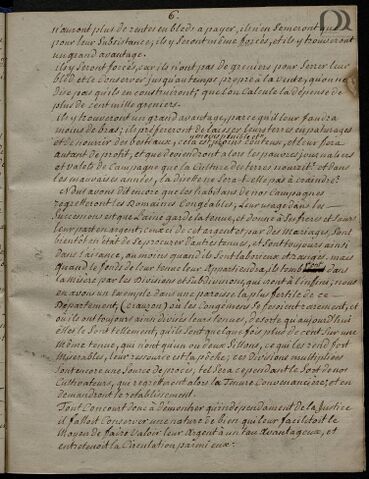 6.
n'auront plus de rentes en bleds a payer, ils n'en Semeront que
pour leur Subsistance, ils y Seront même forcés, et ils y trouveront
un grand avantage.
ils y Seront forcés, car ils n'ont pas de greniers pour Serrer leur
bled et le conserver jusqu'au temps propre à la vente, qu'on ne
dise pas qu'ils en construiront; que l'on Calcule la dépense de
plus de cent mille greniers.
ils y trouveront un grand avantage, parce qu'il leur faudra
moins de bras; ils préfereront de laisser leurs terres en paturages
et de nourrir des bestiaux, cela est moins couteux, et leur fera
autant de profit; et que deviendront alors les pauvres journaliers
et valets de Campagne que la Culture des terres nourrit? et dans
les mauvaises années, la disette ne Sera t'elle pas à craindre?
Nous avons dit encore que les habitans de nos Campagnes
regretteront les Domaines Congéables, Leur usage dans les
Successions est que l'ainé garde la tenue, et donne à Ses freres et Sœurs
leur part en argent; ceux ci de cet argent et par des Mariages, Sont
bientôt en état de Se procurer d'autres tenues, et Sont toujours ainsi
dans l'aisance, au moins quand ils Sont laborieux et rangés. mais
quand le fonds de leur tenue leur Appartiendra, ils tomberont dans
la misère, par les Divisions et Subdivisions, qui iront à l'infini; nous
en avons un Exemple dans une paroisse la plus fertile de ce
Département, (Crauzon) où les Congémens Se font rarement, et
où ils ont toujours ainsi divisé leurs tenues, de sorte qu'aujourd'hui
elles le Sont tellement, qu'ils Sont quelque fois plus de cent Sur une
même tenue, qui n'ont qu'un ou deux Sillons, ce qui les rend fort
Misérables, leur ressource est la pêche; ces divisions multipliées
Sont encore une Source de procès, tel Sera cependant le Sort de nos
Cultivateurs, qui regretteront alors la Tenure Convenanciere, et en
demanderont le rétablissement.
Tout Concourt donc à démontrer qu'independament de la Justice
il falloit Conserver une nature de bien qui leur facilitoit le
Moyen de faire valoir leur Argent à un taux avantageux, et
entretenoit la Circulation parmi eux.